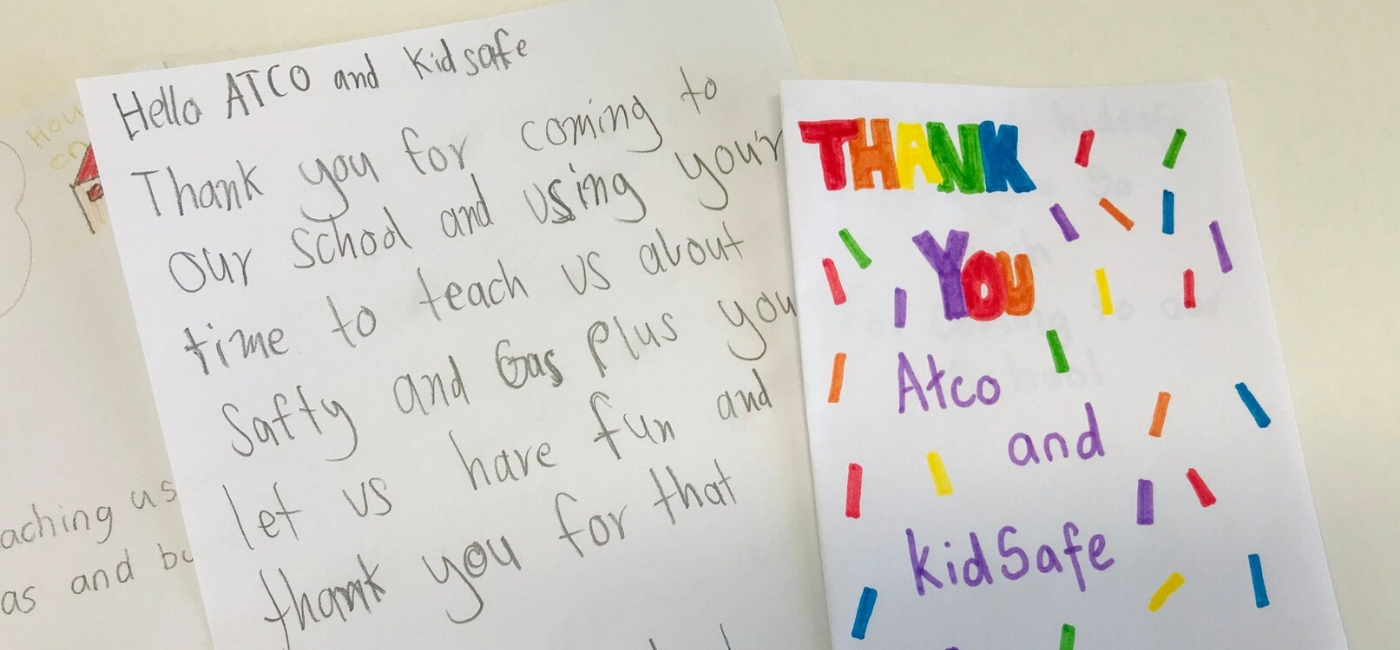 Hello ATCO and Kidsafe
Thank you for coming to
our school and using your
time to teach us about
Safty and Gas plus you
let us have fun and
thank you for that
THANK
YOU
Atco
and
kidSafe
How
on
aching us
as and bu